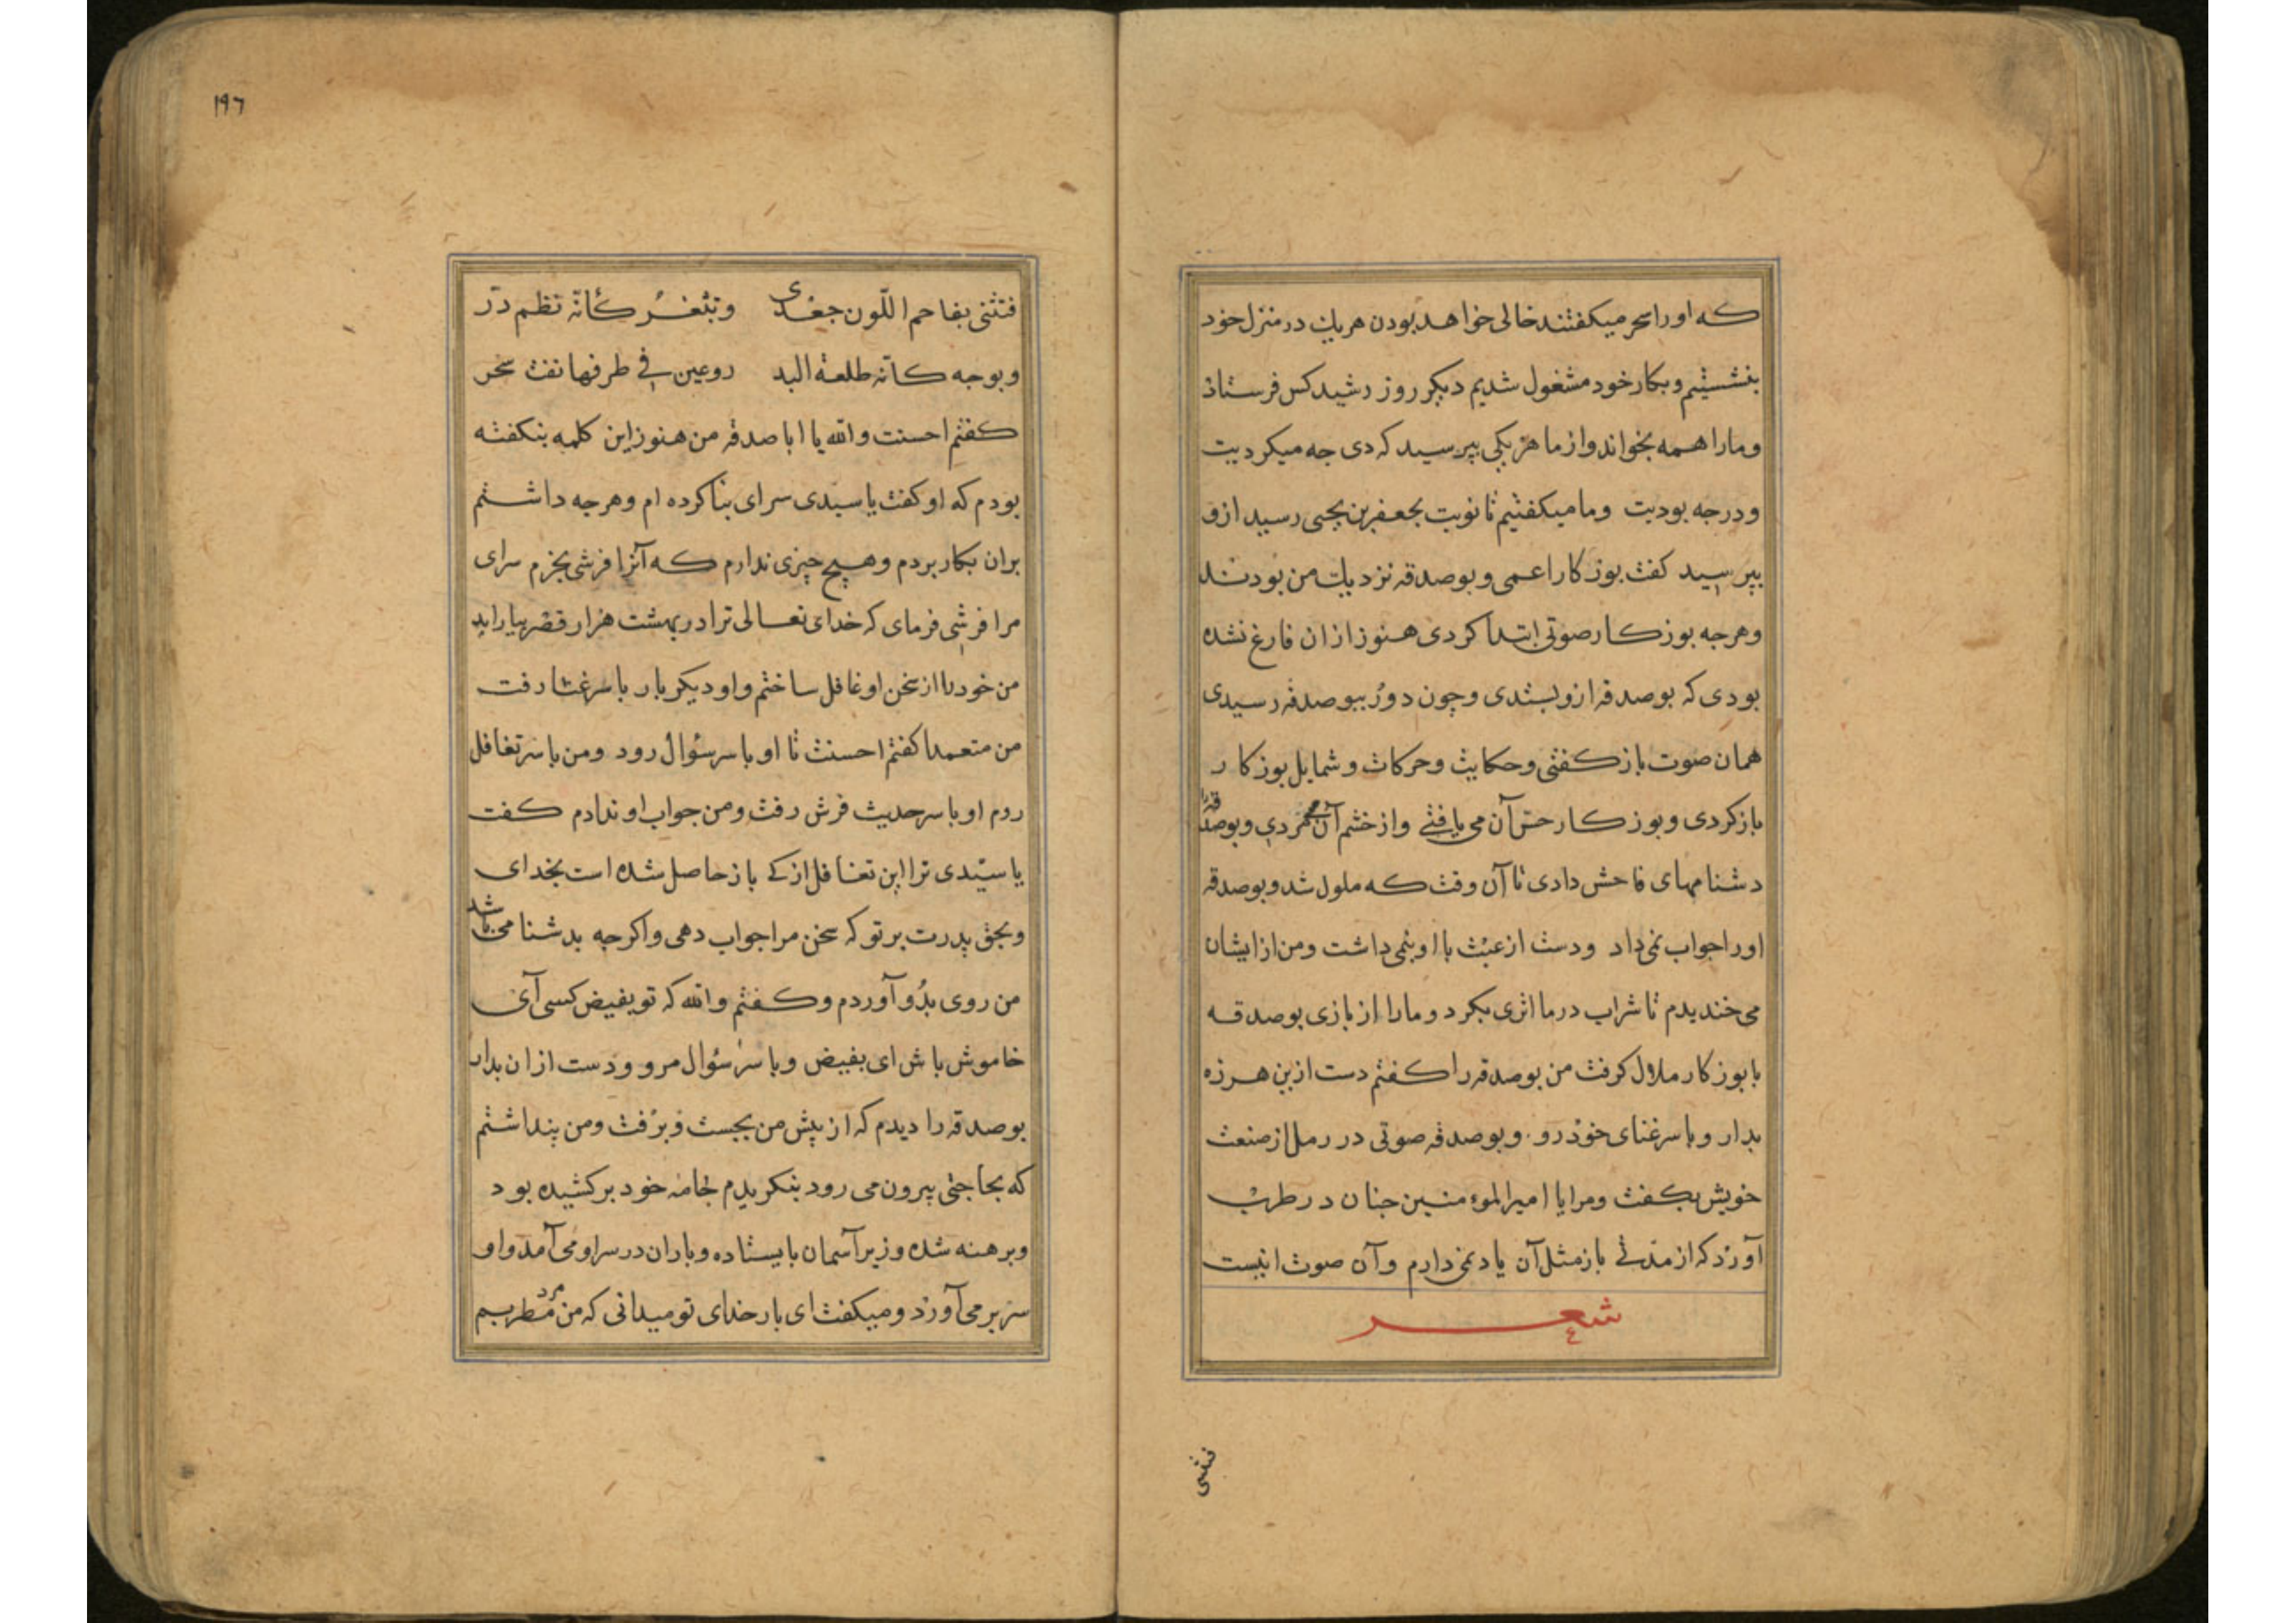 که او را سحر میکفتند خالی خواهد بودن هریک در منزل خود
بنشستیم و بکار خود مشغول شدیم دیکر روز رشید کس فرستاذ
و ما را همه بخواند و از ما هر یکی بپرسید که دی جه میکردیت
و درجه بودیت و ما میکفتیم تا نوبت بجعفر بن یحیی رسید ازو
بپرسید کفت بوزکار اعمی و بوصدقه نزدیک من بودند
و هرجه بوزکار صوتی ابتدا کردی هنوز از ان فارغ نشده
بودی که بوصدقه ازو بستدی و چون دور ببوصدقه رسیدی
همان صوت باز کفتی و حکایت و حرکات و شمایل بوزکار
باز کردی و بوزکار حس آن می یافتی و از خشم آن می مردی و بوصدقه را
دشنامهای فاحش دادی تا آن وقت که ملول شد و بوصدقه
او را جواب نمی داد و دست از عبث با او بنمی داشت و من از ایشان
می خندیدم تا شراب در ما اثری بکرد و ما را از بازی بوصدقه
با بوزکار ملال کرفت من بوصدقه را کفتم دست ازین هرزه
بدار و با سر غنای خوذ رو و بوصدقه صوتی در رمل از صنعت
خویش بکفت و مرا یا امیر المؤمنین جنان در طرب
آورد که از مدتی باز مثل آن یاد نمی دارم و آن صوت اینست
شعر
فتثنی
١٩٦
فتثنی بفاحم اللّون جعدی وبثغر کأنّه نظم در
وبوجه کانّه طلعة البد روعین فی طرفها نفث سحر
کفتم احسنت والله یا ابا صدقه من هنوز این کلمه بنکفته
بودم که او کفت یا سیدی سرای بنا کرده ام و هرجه داشتم
بران بکار بردم و هیچ چیزی ندارم که آنرا فرشی بخرم سرای
مرا فرشی فرمای که خدای تعالی ترا در بهشت هزار قصر بیاراید
من خود را از سخن او غافل ساختم و او دیکر بار با سر غنا رفت
من متعمدا کفتم احسنت تا او با سر سؤال رود و من با سر تغافل
روم او با سر حدیث فرش رفت و من جواب او ندادم کفت
یا سیّدی ترا این تغافل از کی باز حاصل شده است بخدای
و بحق پدرت بر تو که سخن مرا جواب دهی و اکرچه بدشنامی باشد
من روی بدو آوردم و کفتم والله که تو بغیض کسی آی
خاموش باش ای بغیض و با سر سؤال مرو و دست از ان بدار
بوصدقه را دیدم که از پیش من بجست و برفت و من پنداشتم
که بحاجتی بیرون می رود بنکریدم جامه خود برکشیده بود
و برهنه شده و زیر آسمان بایستاده و باران در سر او می آمد و او
سر بر می آورد و میکفت ای بار خدای تو میدانی که من مرد مطربیم